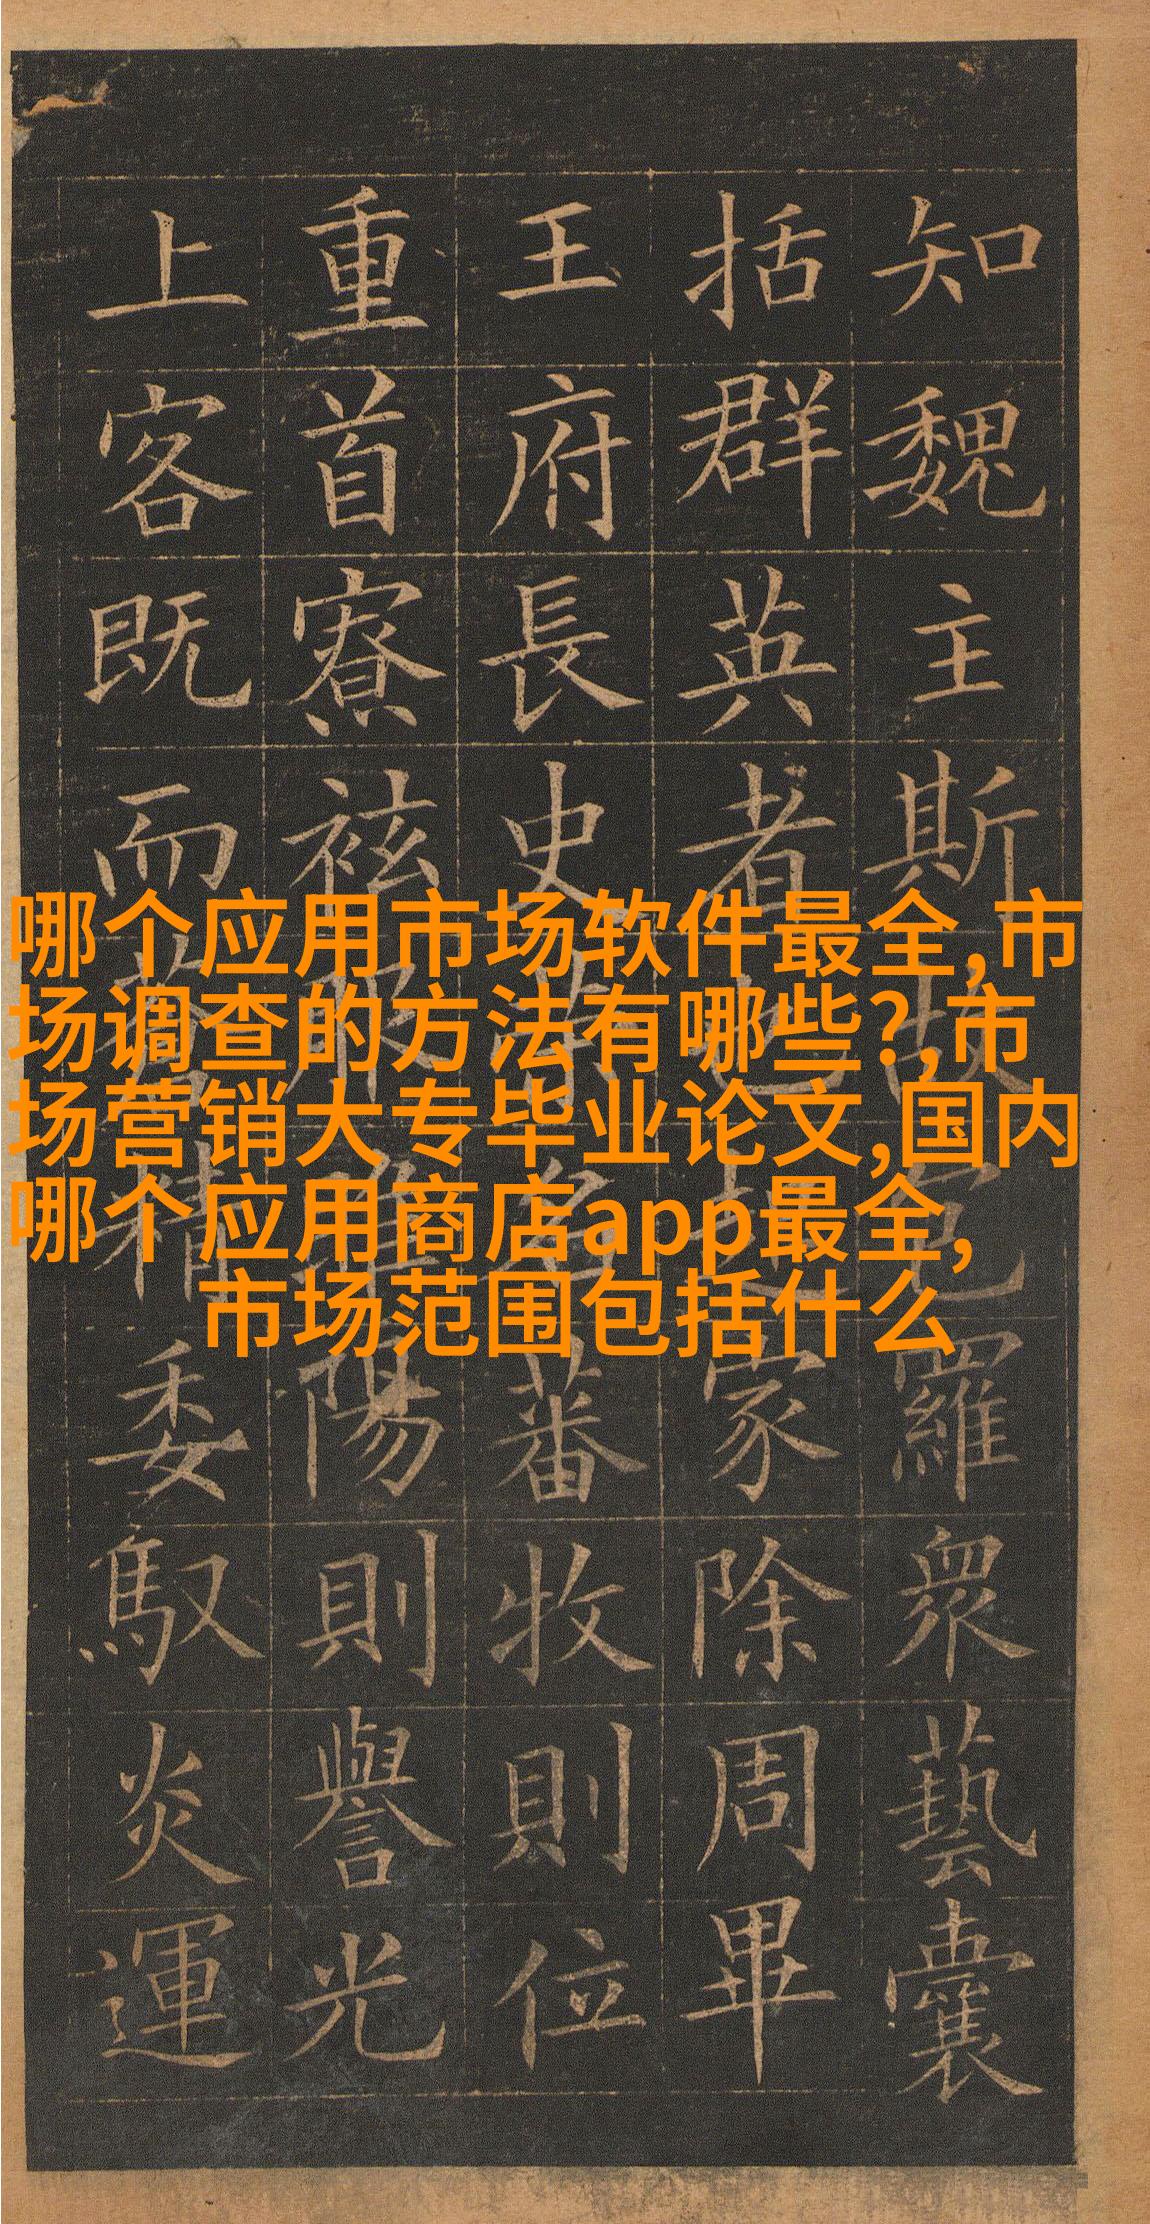 哪个应用市场软件最全,市
场调查的方法有哪些?,市
场营销大专毕业论文,国内
哪个应用商店app最全,
市场范围包括什么
知魏主斯故包羅衆藝囊
括群英者也起家除周畢
王府長史榮名蕃牧則位
重首寮袨服睢陽則譽光
上客既而蒼精委馭炎運